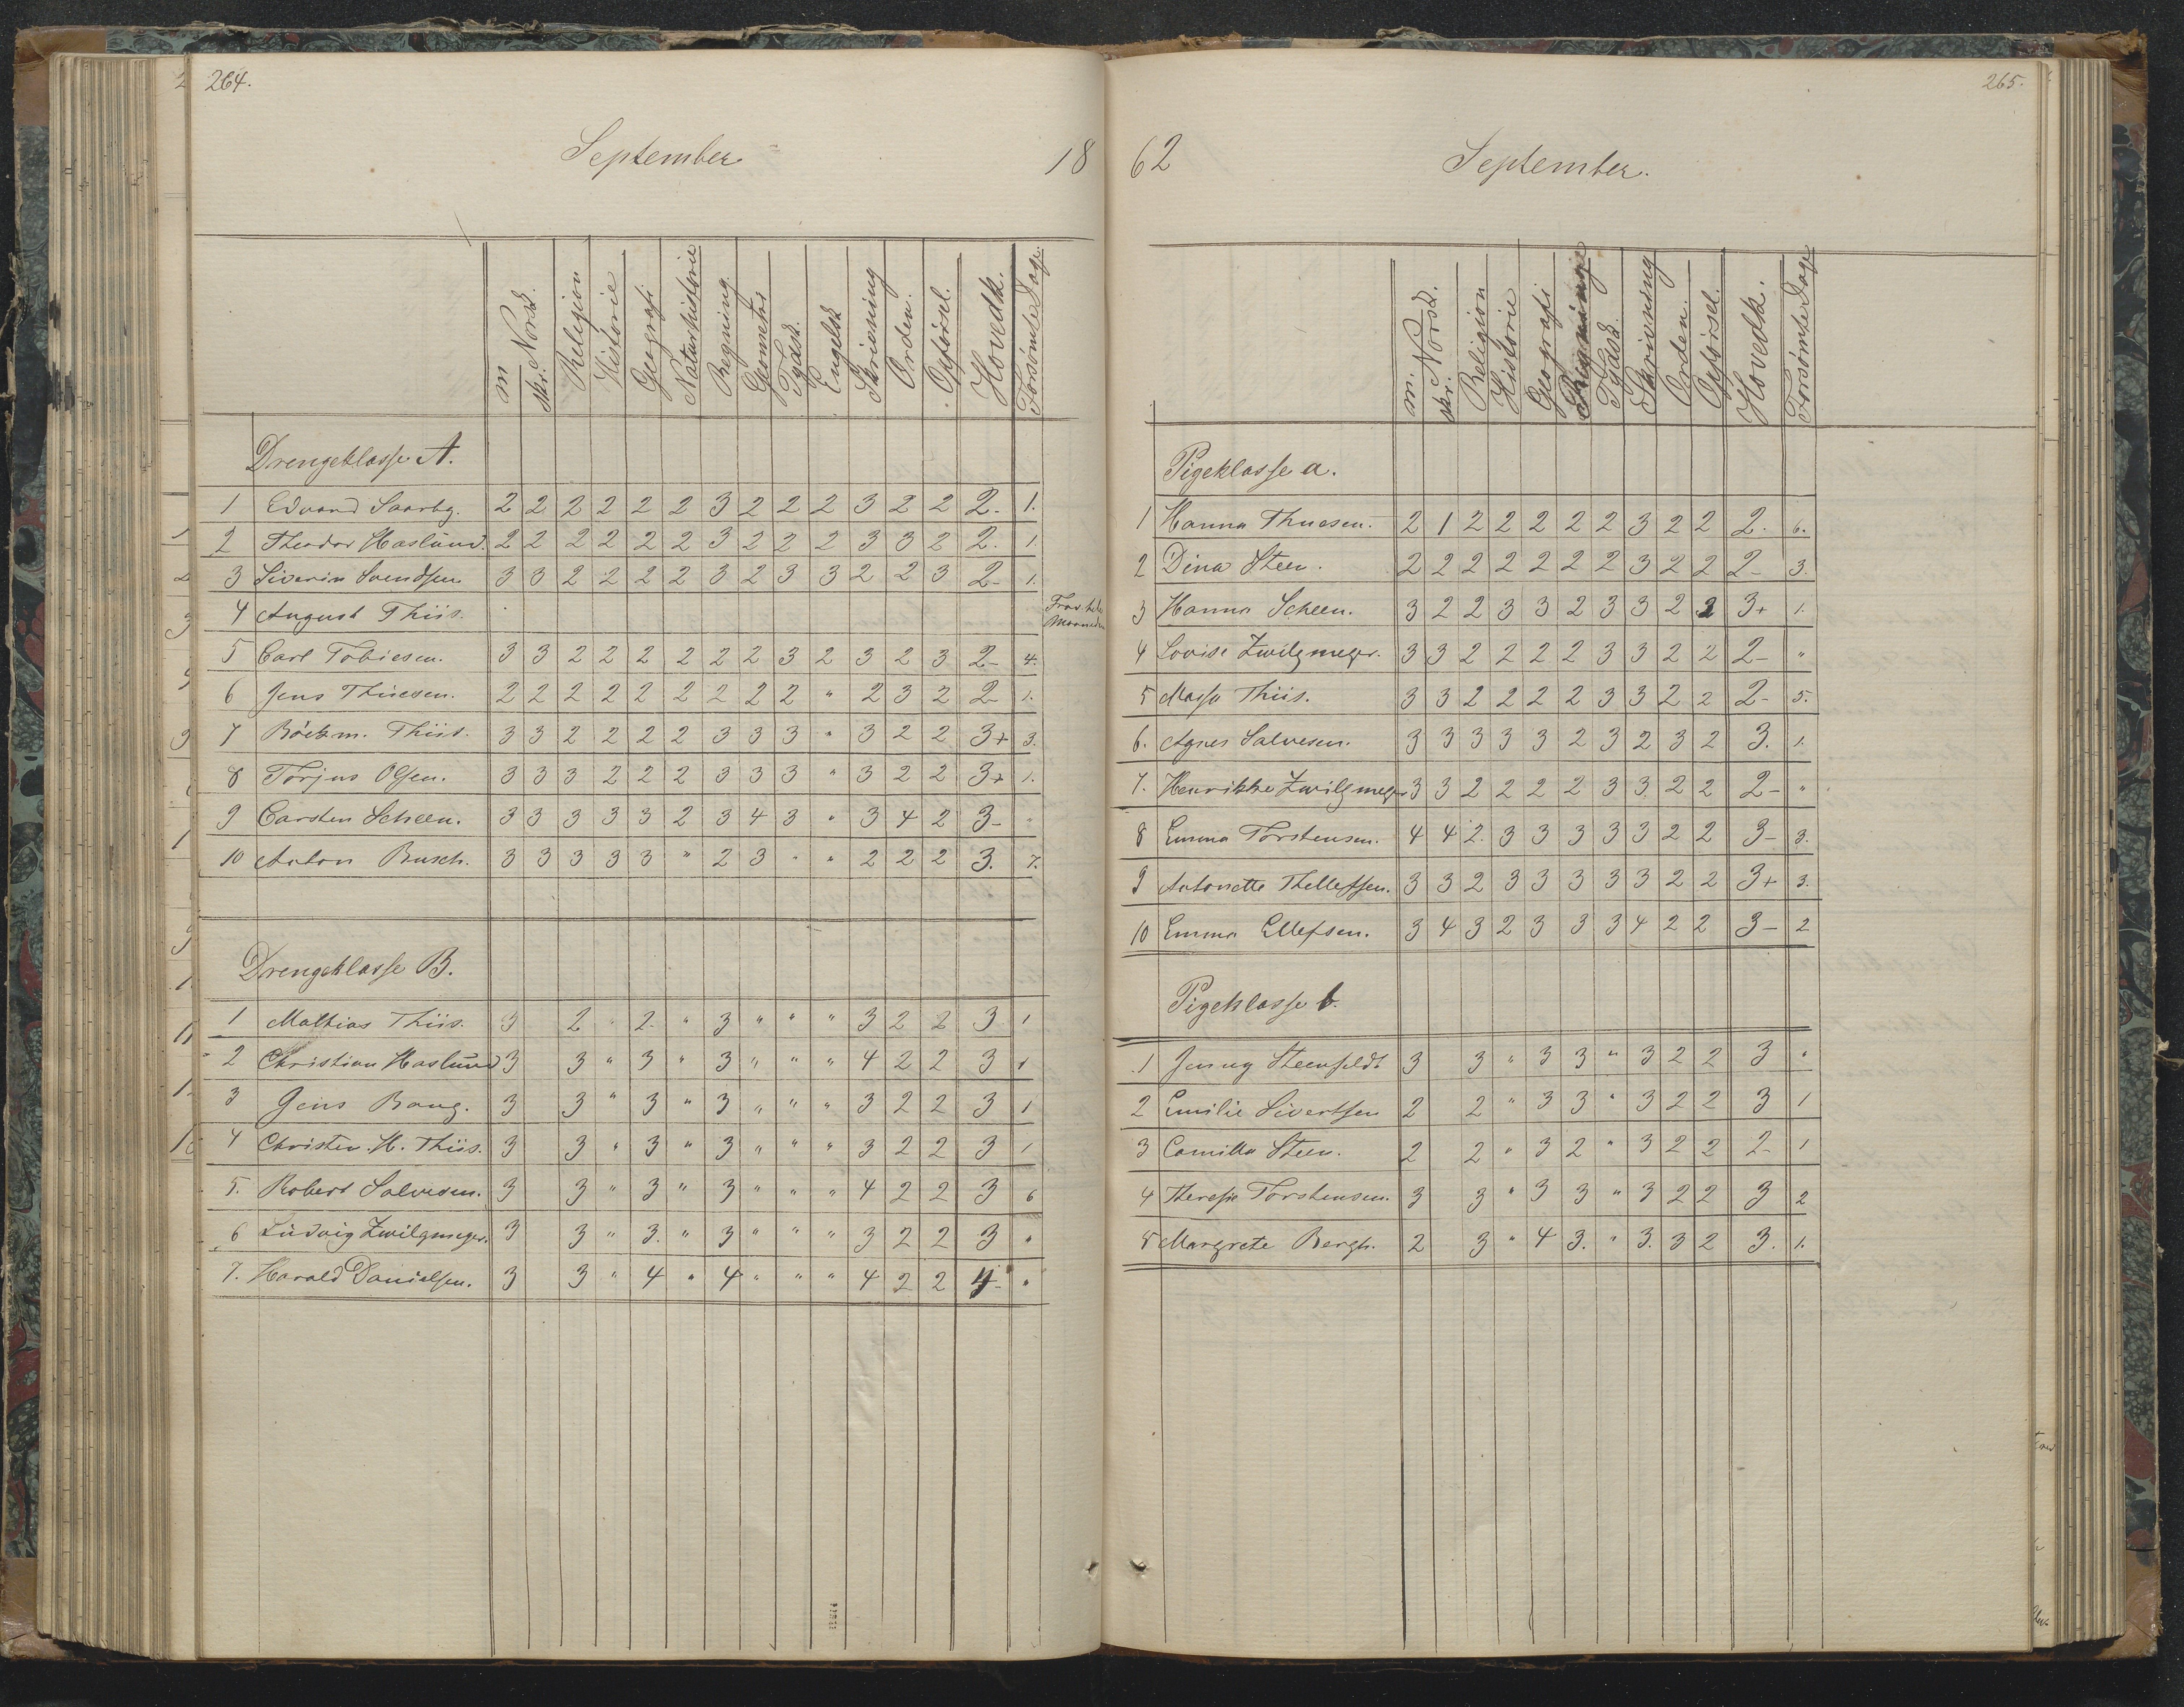 264.
September
18
m. Norsk. skr. Religion Historie Geografi Naturhistorie Regning Geometri Tydsk. Engelsk Skrivning Orden. Opførsel. Hovedk. Forsømte Dage.
Drengeklasse A.
1 Edvard Saarbg. 2 2 2 2 2 2 3 2 2 2 3 2 2 2- 1.
2 Theodor Haslund. 2 2 2 2 2 2 3 2 2 2 3 3 2 2. 1.
3 Siverin Svendsen 3 3 2 2 2 2 3 2 3 3 2 2 3 2- 1.
4 August Thiis. Frav. hele Maaneden
5 Carl Tobiesen. 3 3 2 2 2 2 2 2 3 2 3 2 3 2- 4.
6 Jens Thuesen. 2 2 2 2 2 2 2 2 2 " 2 3 2 2- 1.
7 Böckm. Thiis. 3 3 2 2 2 2 3 3 3 " 3 2 2 3+ 3.
8 Torjus Olsen. 3 3 3 2 2 2 3 3 3 " 3 2 2 3+ 1.
9 Carsten Scheen. 3 3 3 3 3 2 3 4 3 " 3 4 2 3- "
10 Anton Busch. 3 3 3 3 3 " 2 3 " " 2 2 2 3. 7.
Drengeklasse B.
1 Mathias Thiis. 3 2 " 2. " 3 " " " 3 2 2 3 1
2 Christian Haslund 3 3 " 3 " 3 " " " 4 2 2 3 1
3 Jens Bang. 3 3 " 3 " 3 " " " 3 2 2 3 1
4 Christen. H. Thiis. 3 3 " 3 " 3 " " " 3 2 2 3 1
5. Robert Salvesen. 3 3 " 3 " 3 " " " 4 2 2 3 6
6 Ludvig Zwilgmeyer. 3 3 " 3. " 3 " " " 3 2 2 3 "
7. Harald Danielsen. 3 3 " 4 " 4 " " " 4 2 2 4- "
265.
62
September.
m. Norsk. skr. Religion Historie Geografi Regning Tydsk. Skrivning Orden. Opførsel. Hovedk. Forsømte Dage
Pigeklasse a.
1 Hanna Thuesen. 2 1 2 2 2 2 2 3 2 2 2. 6.
2 Dina Steen. 2 2 2 2 2 2 2 3 2 2 2- 3.
3 Hanna Scheen. 3 2 2 3 3 2 3 3 2 2 3+ 1.
4 Lovise Zwilgmeyer. 3 3 2 2 2 2 3 3 2 2 2- "
5 Massa Thiis. 3 3 2 2 2 2 3 3 2 2 2- 5.
6. Agnes Salvesen. 3 3 3 3 3 2 3 2 3 2 3. 1.
7. Henrikke Zwilgmeyer 3 3 2 2 2 2 3 3 2 2 2- "
8 Emma Torstensen. 4 4 2. 3 3 3 3 3 2 2 3- 3.
9 Antonette Thellefsen. 3 3 2 3 3 3 3 3 2 2 3+ 3.
10 Emma Ellefsen. 3 4 3 2 3 3 3 4 2 2 3- 2
Pigeklasse b.
1 Jenny Steenfeldt 3 3 " 3 3 " 3 2 2 3 "
2 Emilie Sivertsen 2 2 " 3 3 " 3 2 2 3 1
3 Camilla Steen. 2 2 " 3 2 " 3 2 2 2- 1
4 Therese Torstensen. 3 3 " 3 3 " 3 2 2 3 2
5 Margrete Bergh. 2 3 " 4 3. " 3. 3 2 3. 1.